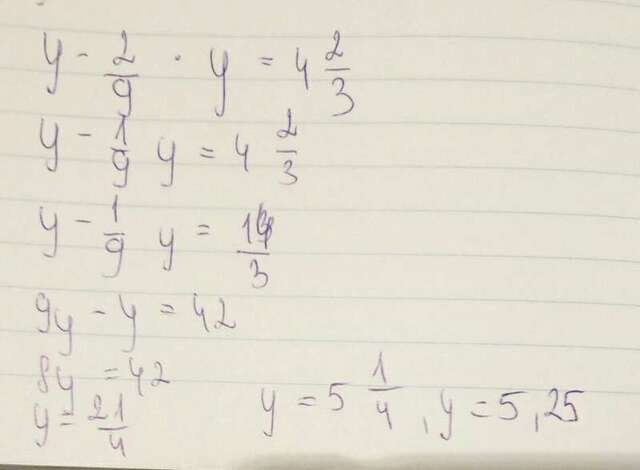 y - 2/9 · y = 4 2/3
y - 1/9 y = 4 2/3
y - 1/9 y = 14/3
9y - y = 42
8y = 42
y = 21/4 y = 5 1/4, y = 5,25